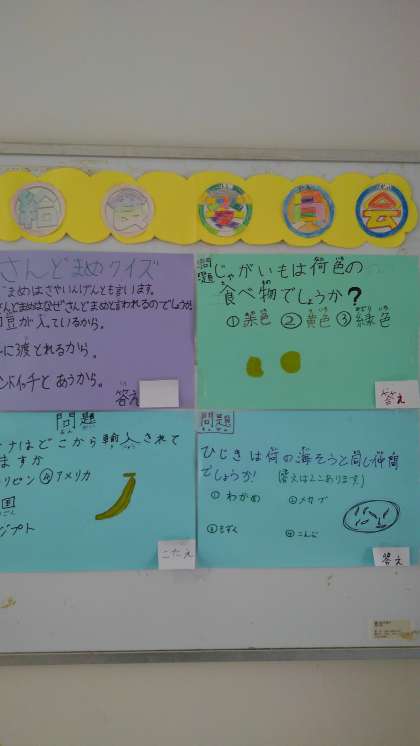 給食委員会
さんどまめクイズ
まめはさやいんげんとも言います。
さんどまめはなぜさんどまめと言われるのでしょうか
豆が入っているから。
に渡とれるから。
ンドイッチとあうから。
答え
問題
じゃがいもは何色の
食べ物でしょうか?
①茶色 ②黄色 ③緑色
答え
問題
ナはどこから輸入されて
ますか
リピン ④アメリカ
国
ジプト
こたえ
問題
ひじきは何の海そうと同じ仲間
でしょうか! (答えは2こあります!)
①わかめ ②メカブ
③もずく ④こんぶ
答え